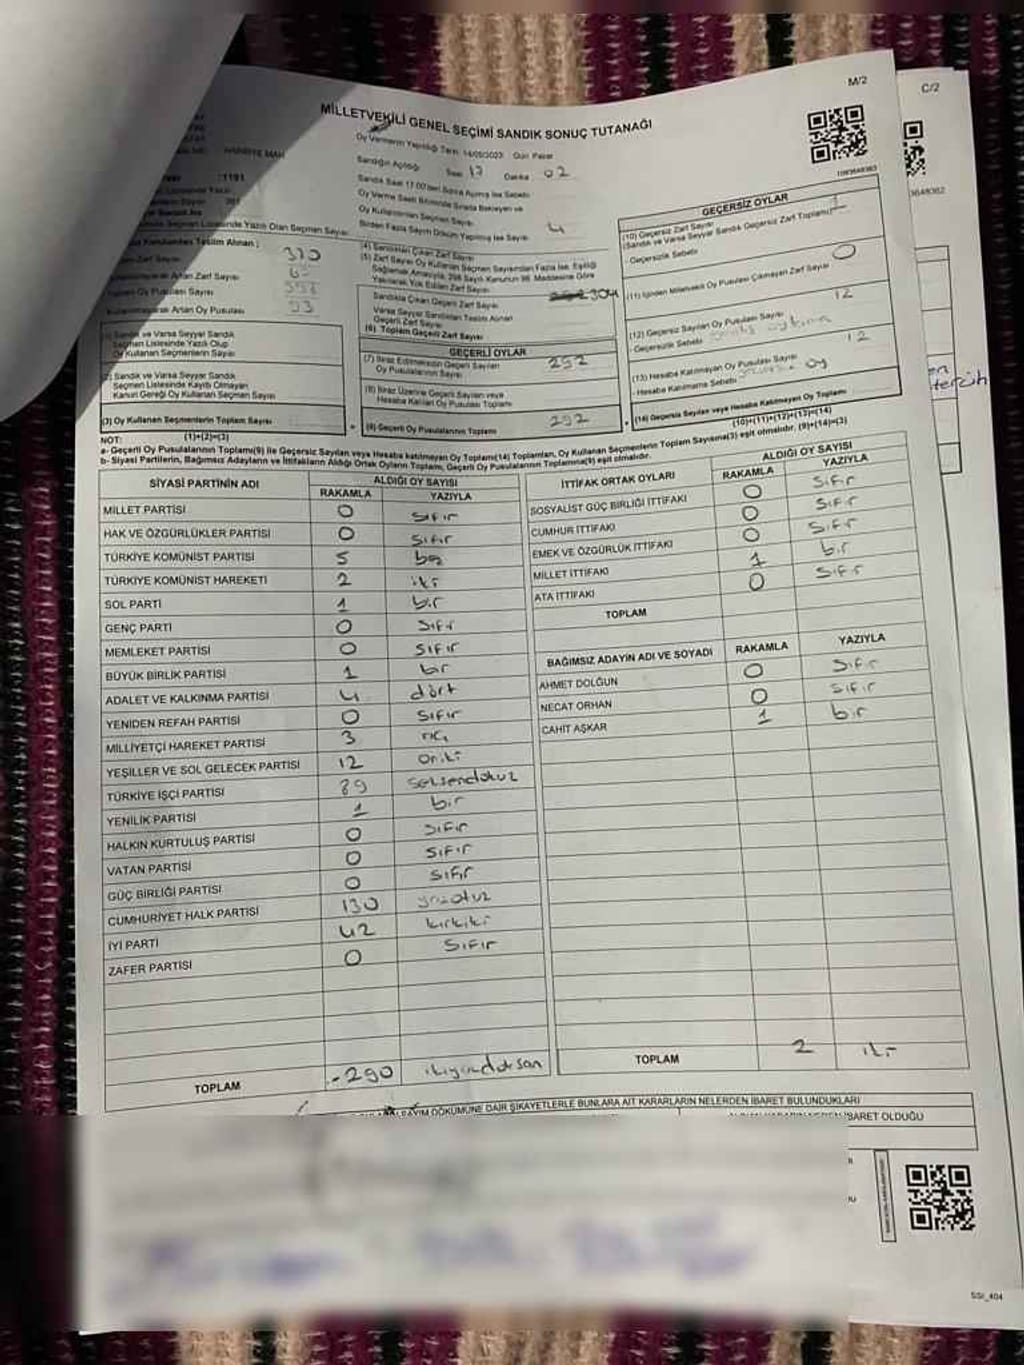 M/2
C/2
MİLLETVEKİLİ GENEL SEÇİMİ SANDIK SONUÇ TUTANAĞI
Oy Vermenin Yapıldığı Tarih: 14/05/2023 Gün Pazar
Sandığın Açıldığı Saat 17 Dakika 02
Sandık Saat 17:00'den Sonra Açılmış İse Sebebi
Oy Verme Saati Bitiminde Sırada Bekleyen ve
Oy Kullandırılan Seçmen Sayısı
Birden Fazla Sayım Döküm Yapılmış İse Sayısı 4
: 1191
Seçmen Listesinde Yazılı Olan Seçmen Sayısı
Teslim Alınan ;
Zarf Sayısı 310
Artan Zarf Sayısı
Oy Pusulası Sayısı
Artan Oy Pusulası
(1) Sandık ve Varsa Seyyar Sandık
Seçmen Listesinde Yazılı Olup
Oy Kullanan Seçmenlerin Sayısı
(2) Sandık ve Varsa Seyyar Sandık
Seçmen Listesinde Kayıtlı Olmayan
Kanun Gereği Oy Kullanan Seçmen Sayısı
(3) Oy Kullanan Seçmenlerin Toplam Sayısı
(1)+(2)=(3)
(4) Sandıktan Çıkan Zarf Sayısı
(5) Zarf Sayısı Oy Kullanan Seçmen Sayısından Fazla İse, Eşitliği
Sağlamak Amacıyla, 298 Sayılı Kanunun 98. Maddesine Göre
Yakılarak Yok Edilen Zarf Sayısı
Sandıkta Çıkan Geçerli Zarf Sayısı 304
Varsa Seyyar Sandıktan Teslim Alınan
Geçerli Zarf Sayısı
(6) Toplam Geçerli Zarf Sayısı
GEÇERLİ OYLAR
(7) İtiraz Edilmeksizin Geçerli Sayılan
Oy Pusulalarının Sayısı 292
(8) İtiraz Üzerine Geçerli Sayılan veya
Hesaba Katılan Oy Pusulası Toplamı
(9) Geçerli Oy Pusulalarının Toplamı 292
GEÇERSİZ OYLAR
(10) Geçersiz Zarf Sayısı
(Sandık ve Varsa Seyyar Sandık Geçersiz Zarf Toplamı)
- Geçersizlik Sebebi
(11) İçinden Milletvekili Oy Pusulası Çıkmayan Zarf Sayısı 0
(12) Geçersiz Sayılan Oy Pusulası Sayısı 12
- Geçersizlik Sebebi
(13) Hesaba Katılmayan Oy Pusulası Sayısı 12
- Hesaba Katılmama Sebebi oy
(14) Geçersiz Sayılan veya Hesaba Katılmayan Oy Toplamı
(10)+(11)+(12)+(13)=(14)
tercih
NOT:
a- Geçerli Oy Pusulalarının Toplamı(9) İle Geçersiz Sayılan veya Hesaba katılmayan Oy Toplamı(14) Toplamları, Oy Kullanan Seçmenlerin Toplam Sayısına(3) eşit olmalıdır. (9)+(14)=(3)
b- Siyasi Partilerin, Bağımsız Adayların ve İttifakların Aldığı Ortak Oyların Toplamı, Geçerli Oy Pusulalarının Toplamına(9) eşit olmalıdır.
SİYASİ PARTİNİN ADI ALDIĞI OY SAYISI
RAKAMLA YAZIYLA
MİLLET PARTİSİ 0 sıfır
HAK VE ÖZGÜRLÜKLER PARTİSİ 0 sıfır
TÜRKİYE KOMÜNİST PARTİSİ 5 beş
TÜRKİYE KOMÜNİST HAREKETİ 2 iki
SOL PARTİ 1 bir
GENÇ PARTİ 0 sıfır
MEMLEKET PARTİSİ 0 sıfır
BÜYÜK BİRLİK PARTİSİ 1 bir
ADALET VE KALKINMA PARTİSİ 4 dört
YENİDEN REFAH PARTİSİ 0 sıfır
MİLLİYETÇİ HAREKET PARTİSİ 3 üç
YEŞİLLER VE SOL GELECEK PARTİSİ 12 oniki
TÜRKİYE İŞÇİ PARTİSİ 89 seksendokuz
YENİLİK PARTİSİ 1 bir
HALKIN KURTULUŞ PARTİSİ 0 sıfır
VATAN PARTİSİ 0 sıfır
GÜÇ BİRLİĞİ PARTİSİ 0 sıfır
CUMHURİYET HALK PARTİSİ 130 yüzotuz
İYİ PARTİ 42 kırkiki
ZAFER PARTİSİ 0 sıfır
TOPLAM 290 ikiyüzdoksan
İTTİFAK ORTAK OYLARI ALDIĞI OY SAYISI
RAKAMLA YAZIYLA
SOSYALİST GÜÇ BİRLİĞİ İTTİFAKI 0 sıfır
CUMHUR İTTİFAKI 0 sıfır
EMEK VE ÖZGÜRLÜK İTTİFAKI 0 sıfır
MİLLET İTTİFAKI 1 bir
ATA İTTİFAKI 0 sıfır
TOPLAM
BAĞIMSIZ ADAYIN ADI VE SOYADI RAKAMLA YAZIYLA
AHMET DOLĞUN 0 sıfır
NECAT ORHAN 0 sıfır
CAHİT AŞKAR 1 bir
TOPLAM 2 iki
SAYIM DÖKÜMÜNE DAİR ŞİKAYETLERLE BUNLARA AİT KARARLARIN NELERDEN İBARET BULUNDUKLARI
İBARET OLDUĞU
SSI_404